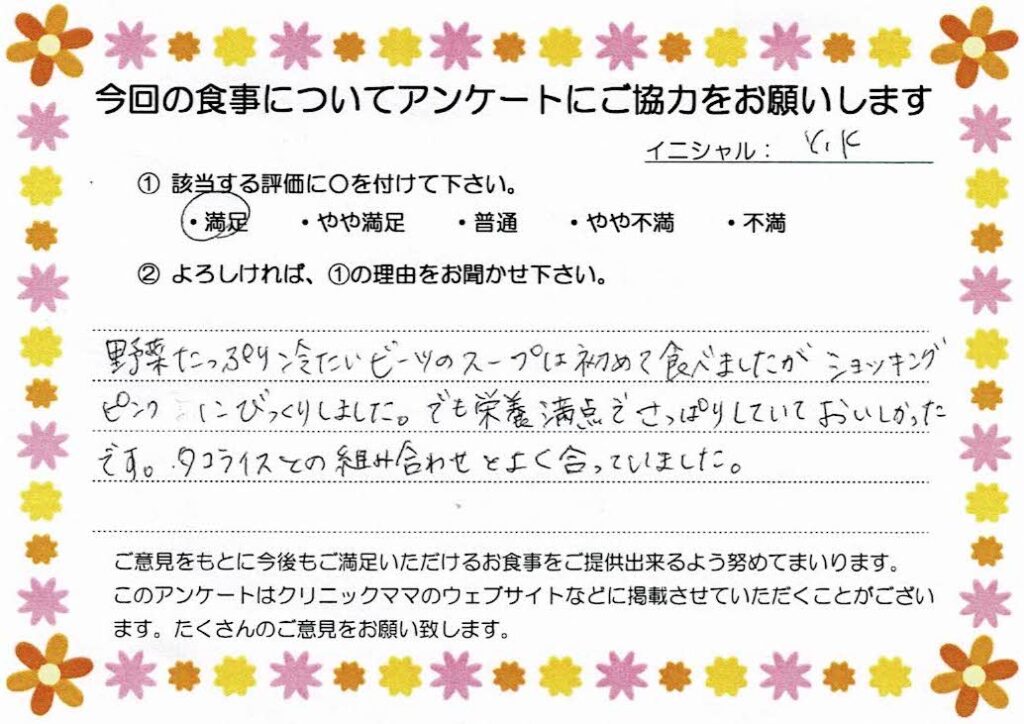 今回の食事についてアンケートにご協力をお願いします
イニシャル： Y.K
① 該当する評価に〇を付けて下さい。
・満足 ・やや満足 ・普通 ・やや不満 ・不満
② よろしければ、①の理由をお聞かせ下さい。
野菜たっぷり冷たいビーツのスープは初めて食べましたが ショッキング
ピンク にびっくりしました。でも栄養満点でさっぱりしていておいしかった
です。タコライスとの組み合わせもよく合っていました。
ご意見をもとに今後もご満足いただけるお食事をご提供出来るよう努めてまいります。
このアンケートはクリニックママのウェブサイトなどに掲載させていただくことがござい
ます。たくさんのご意見をお願い致します。